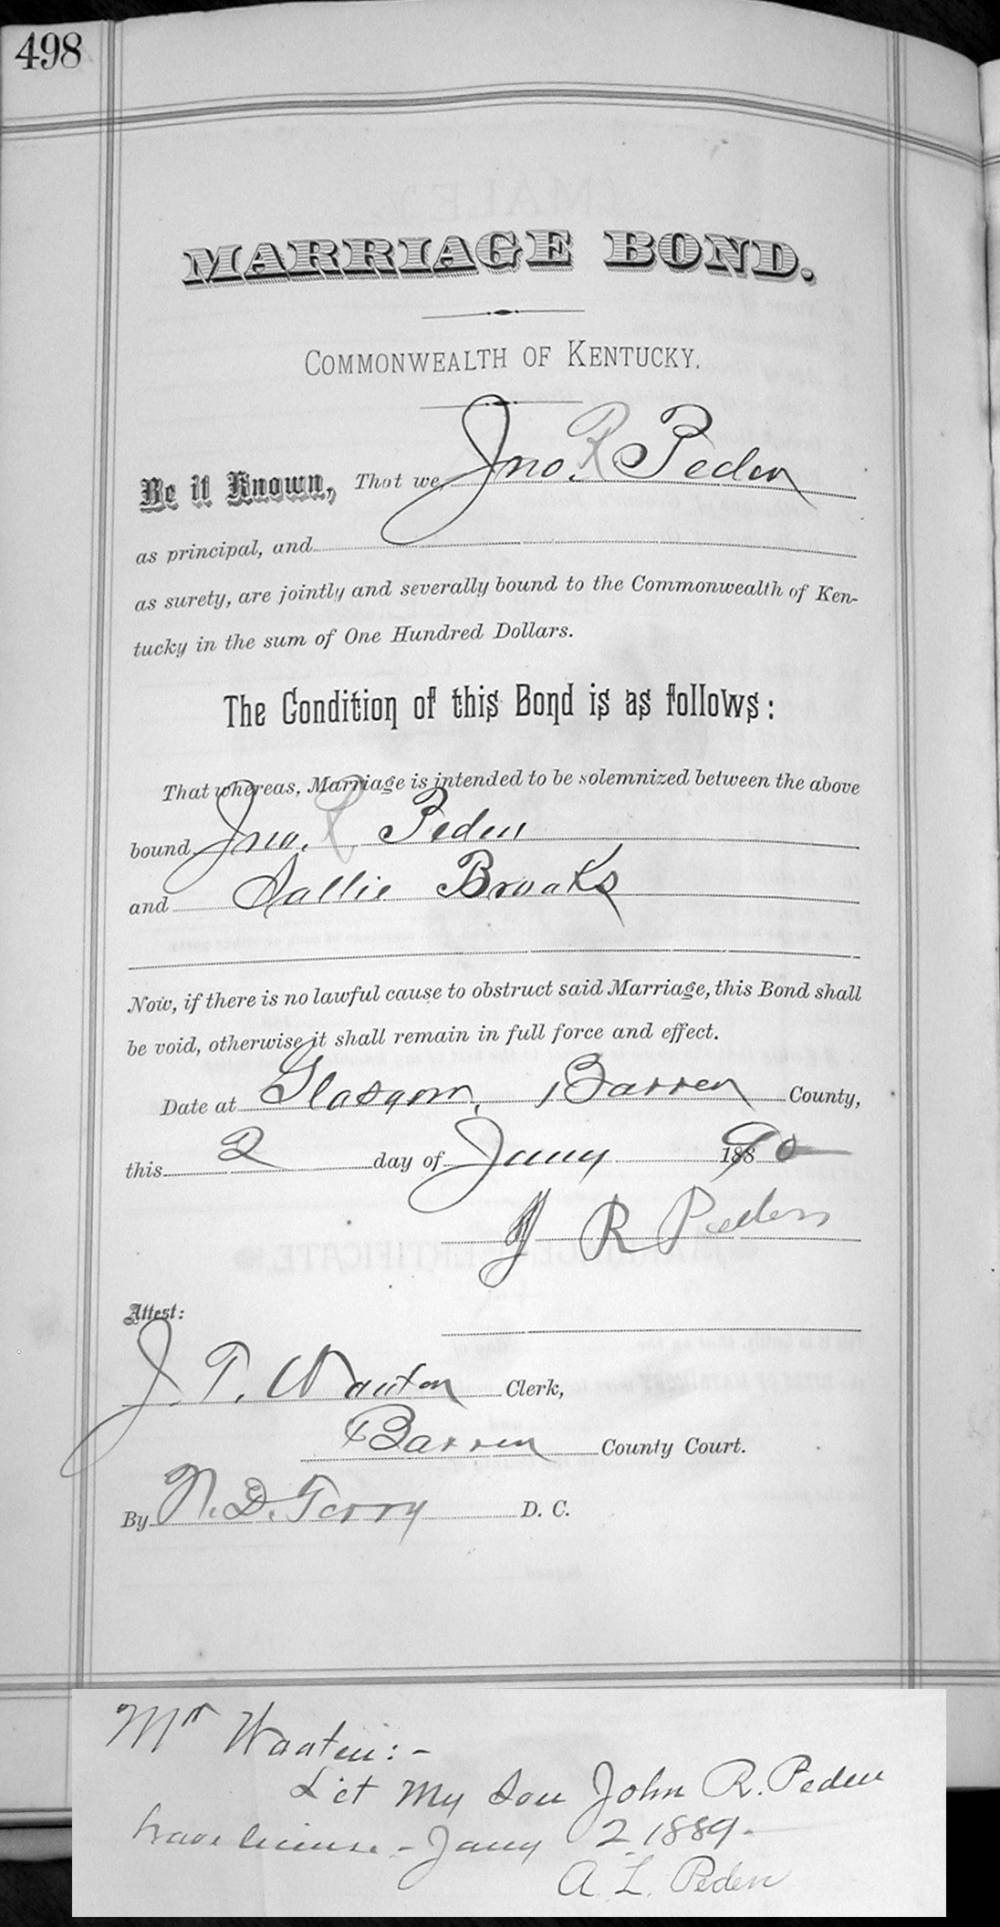 498
MARRIAGE BOND.
COMMONWEALTH OF KENTUCKY.
Be it Known, That we Jno. R Peden
as principal, and
as surety, are jointly and severally bound to the Commonwealth of Ken-
tucky in the sum of One Hundred Dollars.
The Condition of this Bond is as follows:
That whereas, Marriage is intended to be solemnized between the above
bound Jno. R Peden
and Sallie Brooks
Now, if there is no lawful cause to obstruct said Marriage, this Bond shall
be void, otherwise it shall remain in full force and effect.
Date at Glasgow, Barren County,
this 2 day of Jany 1890
J R Peden
Attest:
J. T. Wooten Clerk,
Barren County Court.
By N. D. Terry D. C.
Mr Wooten:-
Let My Son John R. Peden
have license - Jany 2 1889.
A. L. Peden